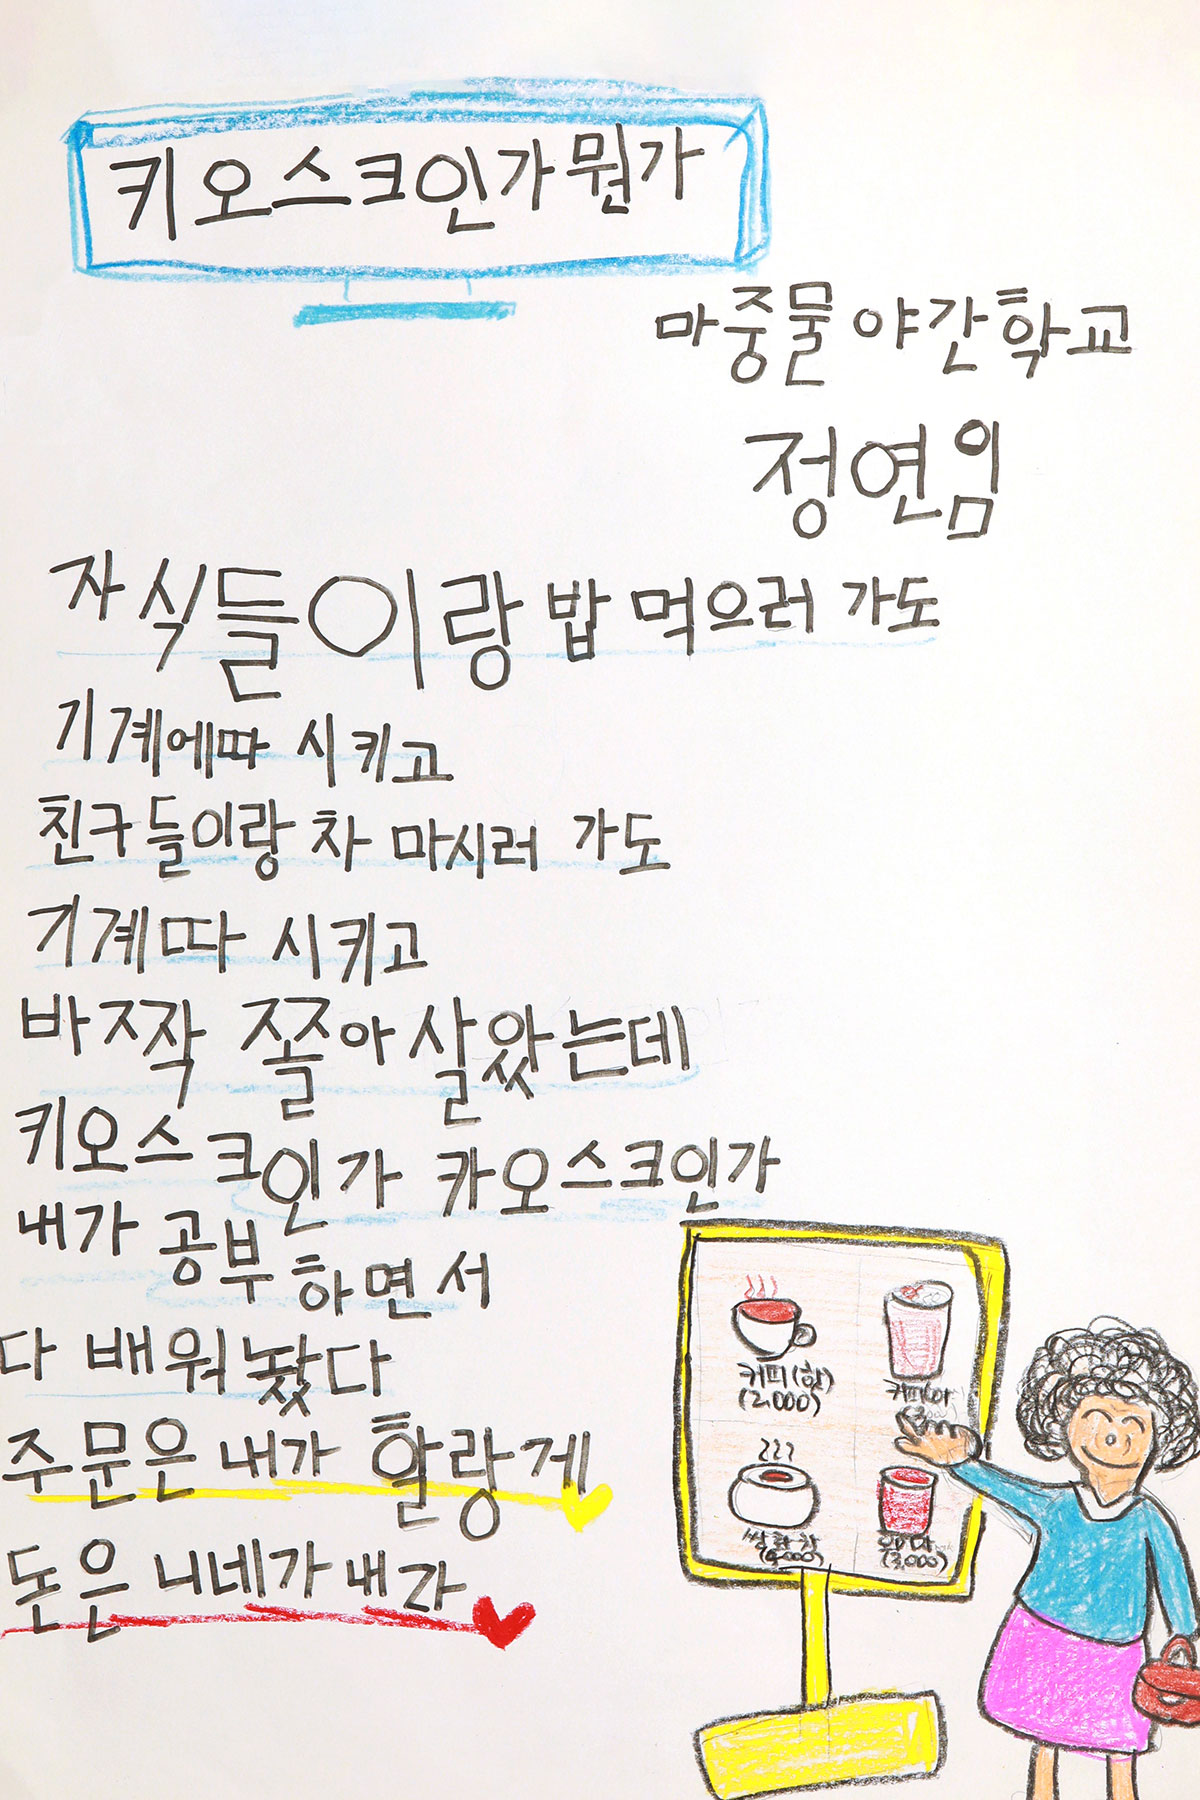 키오스크인가뭔가
마중물 야간학교
정연임
자식들이랑 밥 먹으러 가도
기계에따 시키고
친구들이랑 차 마시러 가도
기계따 시키고
바짝 쫄아 살았는데
키오스크인가 카오스크인가
내가 공부하면서
다 배워놨다
주문은 내가 할랑게
돈은 니네가 내라
커피(핫)
(2,000)
커피(아
쌍화차
(4,000)
오미자
(3,000)